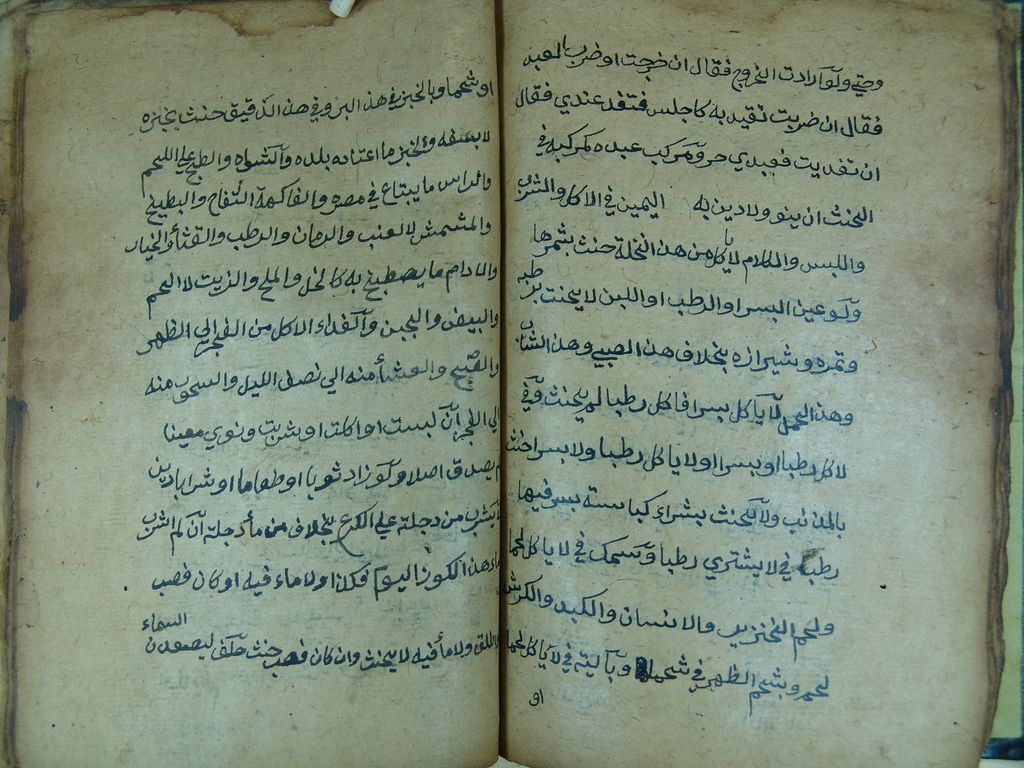 وصي ولو ارادت الخروج فقال ان خرجت او ضرب العبد
فقال ان ضربت تقيد به كاجلس فتغد عندي فقال
ان تغديت فعبدي حر ومركب عبده كمركبه في
الحنث ان ينو ولا دين به اليمين في الاكل والشرب
واللبس والكلام لا ياكل من هذا النخلة حنث بثمرها
ولو عين البسر او الرطب او اللبن لا يحنث برطبه
وتمره وشيرازه بخلاف هذا الصبي وهذا الشاب
وهذا الحمل لا ياكل بسرا فاكل رطبا لم يحنث وفي
لا ياكل رطبا او بسرا او لا ياكل رطبا ولا بسرا حنث
بالمذنب ولا يحنث بشراء كباسة بسر فيها
رطب في لا يشتري رطبا وسمك في لا ياكل لحما
ولحم الخنزير والانسان والكبد والكرش
لحم وبشحم الظهر في شحما وبألية في لا ياكل لحما
او
او شحما وبالخبز في هذا البر وفي هذا الدقيق حنث بخبزه
لا بسفه والخبز ما اعتاده بلده والشواء والطبخ علي اللحم
والراس ما يبتاع في مصره والفاكهة التفاح والبطيخ
والمشمش لا العنب والرمان والرطب والقثأ والخيار
والادام ما يصطبغ به كالخل والملح والزيت لا اللحم
والبيض والجبن والغداء الاكل من الفجر الي الظهر
والعشأ منه الي نصف الليل والسحور منه
الي الفجر ان لبست او اكلت او شربت ونوي معينا
لم يصدق اصلا ولو زاد ثوبا او طعاما او شرابا دين
لا يشرب من دجلة علي الكرع بخلاف من مأ دجلة ان لم اشرب
ماء هذا الكوز اليوم فكذا ولا ماء فيه او كان فصب
او اطلق ولا مأ فيه لا يحنث وان كان فصب حنث حلف ليصعدن
السماء